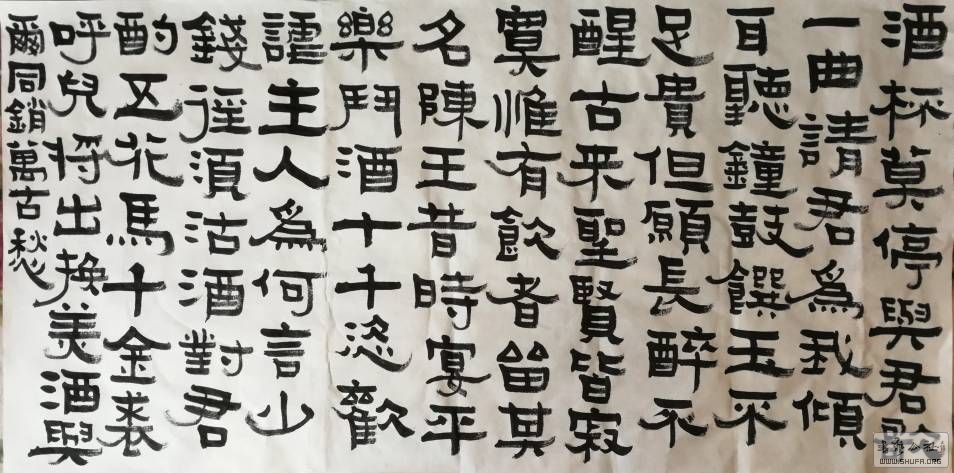 酒杯莫停與君歌
一曲請君爲我傾
耳聽鐘鼓饌玉不
足貴但願長醉不
醒古来聖賢皆寂
寞惟有飲者留其
名陳王昔時宴平
樂鬥酒十千恣歡
謔主人爲何言少
錢徑須沽酒對君
酌五花馬十金裘
呼兒將出換美酒與
爾同銷萬古愁
WWW.SHUFA.ORG